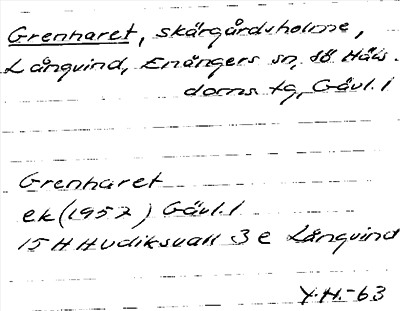 Grenharet, skärgårdsholme,
Långvind, Enångers sn, sö Häls.
doms tg, Gävl. l
Grenharet
ek (1957) Gävl. l
15 H Hudiksvall 3 e Långvind
Y.H.-63